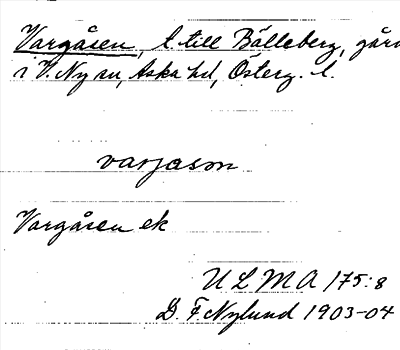 Vargåsen, t. till Bålleberg, gård
i V. Ny sn, Aska hd, Österg. l.
varjason
Vargåsen ek
ULMA 175:8
D. F. Nylund 1903-04